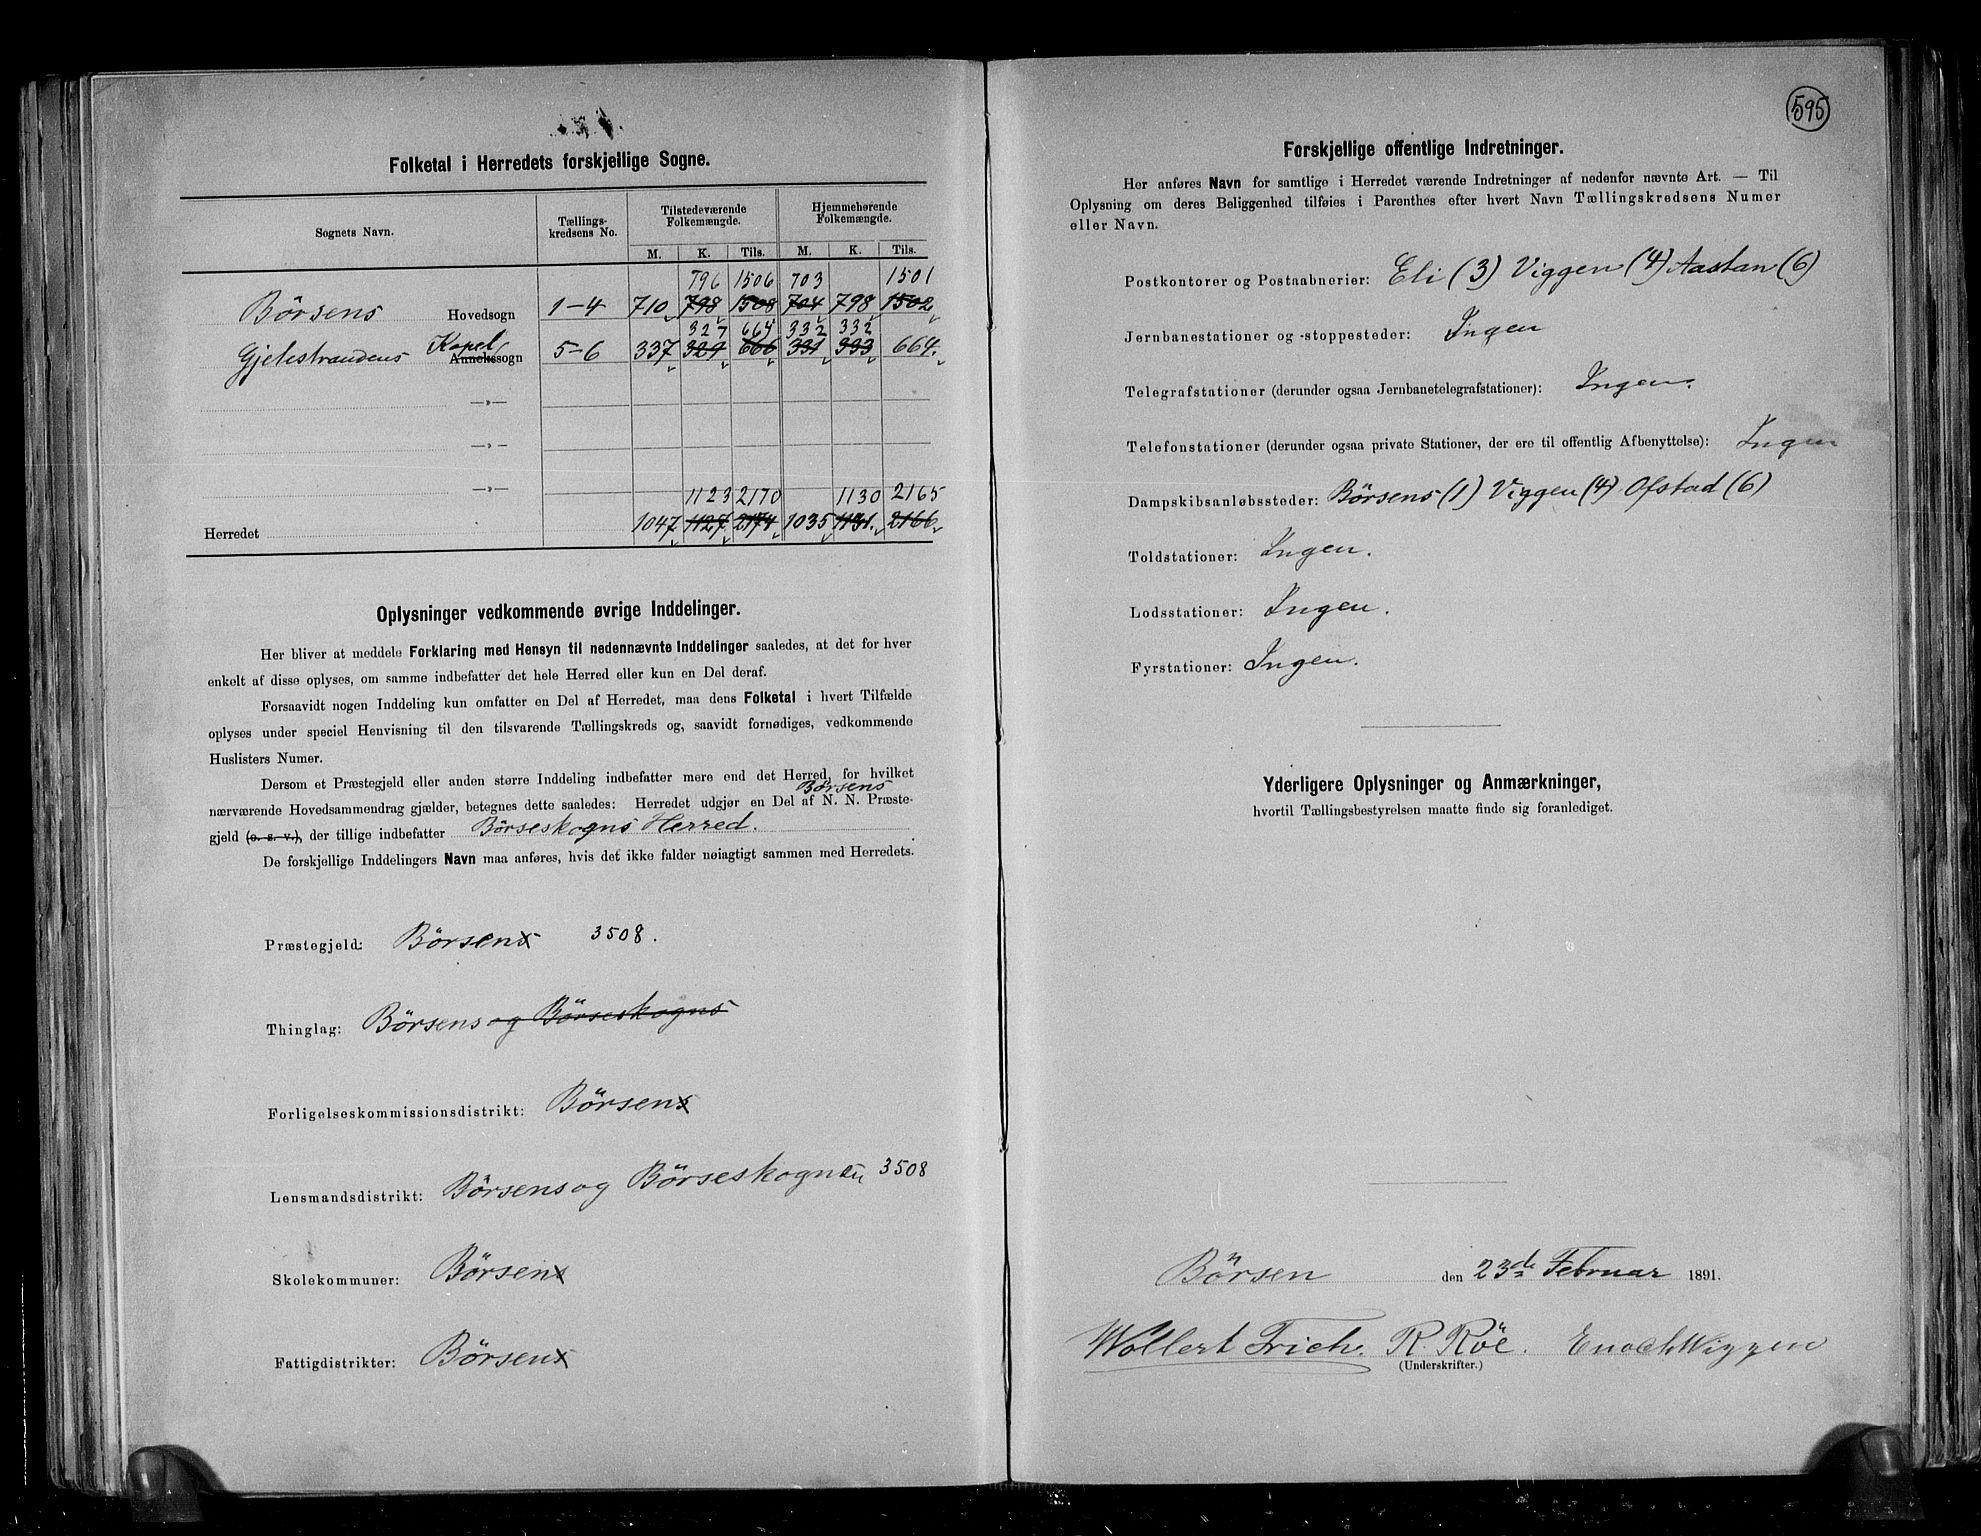 Folketal i Herredets forskjellige Sogne.
Sognets Navn. Tællingskredsens No. Tilstedeværende Folkemængde. Hjemmehørende Folkemængde.
M. K. Tils. M. K. Tils.
796 1506 703 1501
Börsens Hovedsogn 1-4 710 798 1508 704 798 1502
327 664 332 332
Kapel
Gjelestrandens Annekssogn 5-6 337 329 666 331 333 664.
—„—
—„—
—„— 1123 2170 1130 2165
Herredet 1047 1127 2174 1035 1131. 2166
Oplysninger vedkommende øvrige Inddelinger.
Her bliver at meddele Forklaring med Hensyn til nedennævnte Inddelinger saaledes, at det for hver
enkelt af disse oplyses, om samme indbefatter det hele Herred eller kun en Del deraf.
Forsaavidt nogen Inddeling kun omfatter en Del af Herredet, maa dens Folketal i hvert Tilfælde
oplyses under speciel Henvisning til den tilsvarende Tællingskreds og, saavidt fornødiges, vedkommende
Huslisters Numer.
Dersom et Præstegjeld eller anden større Inddeling indbefatter mere end det Herred, for hvilket
Börsens
nærværende Hovedsammendrag gjælder, betegnes dette saaledes: Herredet udgjør en Del af N. N. Præste-
gjeld (o. s. v.), der tillige indbefatter Börseskogns Herred.
De forskjellige Inddelingers Navn maa anføres, hvis det ikke falder nøiagtigt sammen med Herredets.
Præstegjeld: Börsens 3508.
Thinglag: Börsens og Börseskogns
Forligelseskommissionsdistrikt: Börsens
Lensmandsdistrikt: Börsens og Börseskogn 3508
Skolekommuner: Börsens
Fattigdistrikter: Börsens
595
Forskjellige offentlige Indretninger.
Her anføres Navn for samtlige i Herredet værende Indretninger af nedenfor nævnte Art. — Til
Oplysning om deres Beliggenhed tilføies i Parenthes efter hvert Navn Tællingskredsens Numer
eller Navn.
Postkontorer og Postaabnerier: Eli (3) Viggen (4) Aastan (6)
Jernbanestationer og -stoppesteder: Ingen
Telegrafstationer (derunder ogsaa Jernbanetelegrafstationer): Ingen.
Telefonstationer (derunder ogsaa private Stationer, der ere til offentlig Afbenyttelse): Ingen
Dampskibsanløbssteder: Börsens (1) Viggen (4) Ofstad (6)
Toldstationer: Ingen.
Lodsstationer: Ingen.
Fyrstationer: Ingen.
Yderligere Oplysninger og Anmærkninger,
hvortil Tællingsbestyrelsen maatte finde sig foranlediget.
Börsen den 23de Februar 1891.
Wollert Trich. R. Röe. Enoch Wiggen
(Underskrifter.)